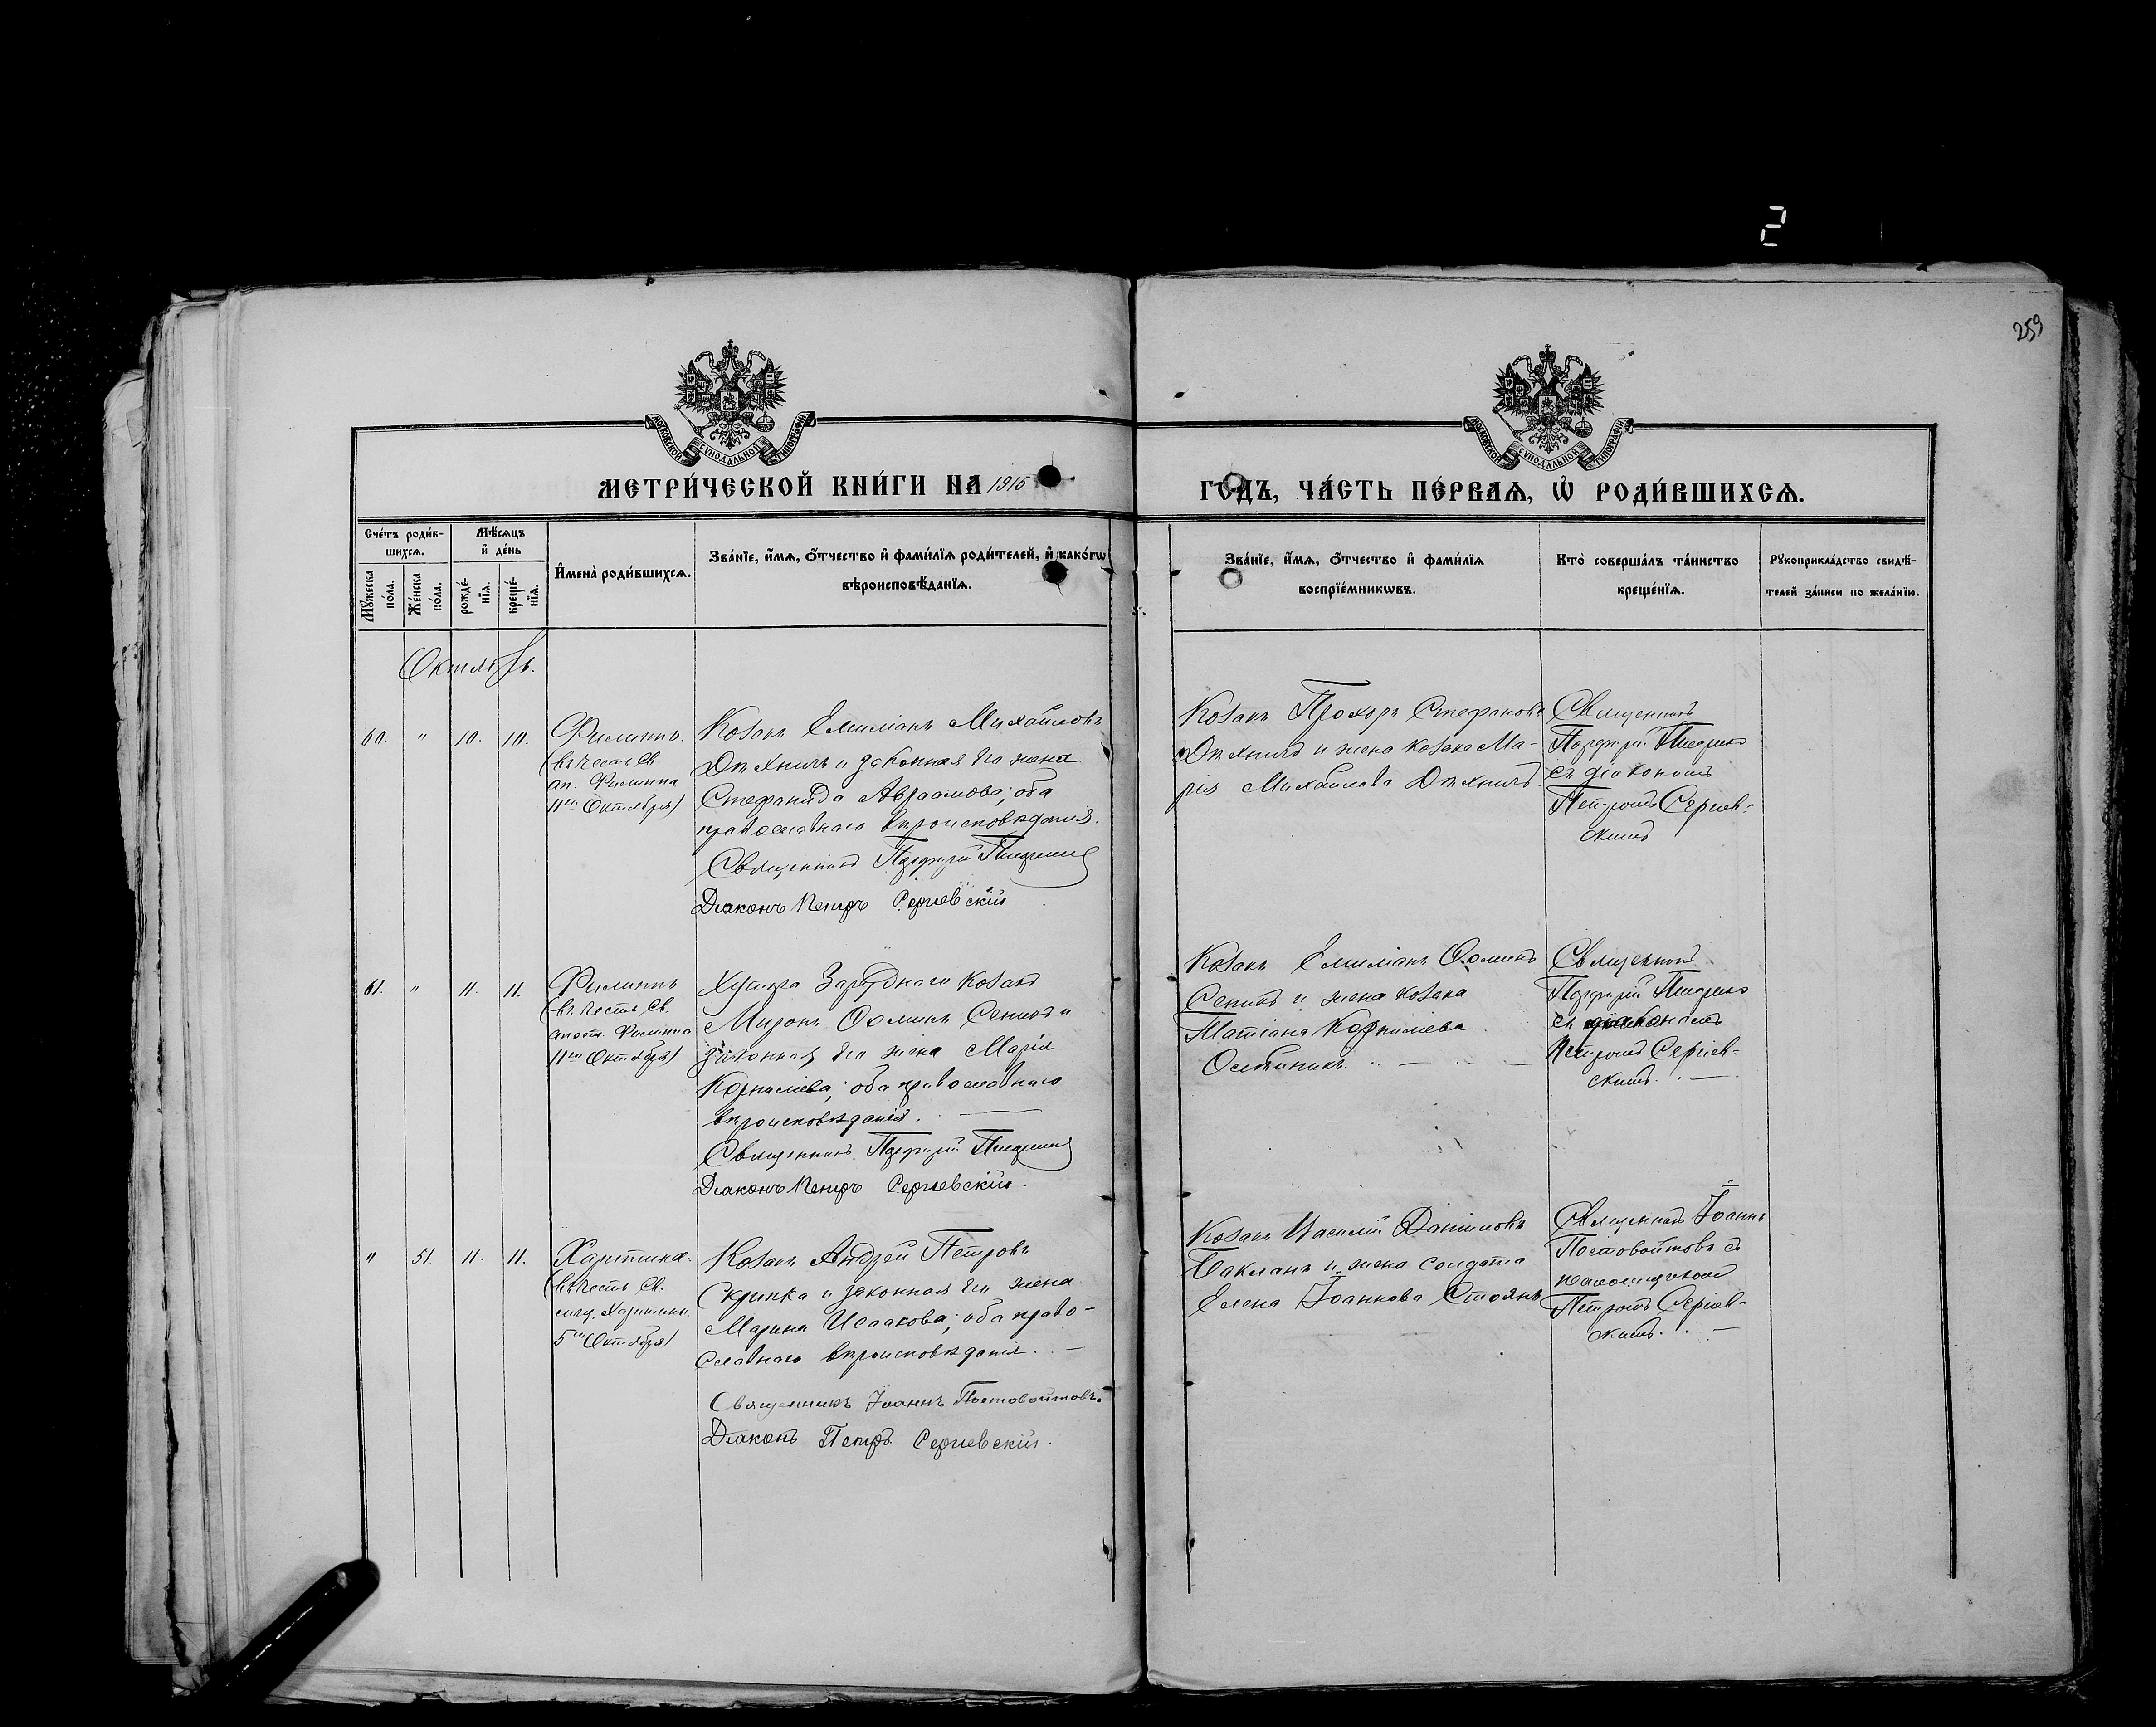 2
259
МОСКОВСКОЙ СѴНОДАЛЬНОЙ ТИПОГРАФІИ
МОСКОВСКОЙ СѴНОДАЛЬНОЙ ТИПОГРАФІИ
МЕТРИ́ЧЕСКОЙ КНИ́ГИ НА 1916
ГО́ДЪ, ЧА́СТЬ ПЕ́РВАѦ, Ѡ҆ РОДИ́ВШИХСѦ.
Сче́тъ роди́в-
шихсѧ.
Мѹ́жеска по́ла.
Же́нска по́ла.
Мѣ́сѧцъ
и҆ де́нь
рожде́-
нїѧ.
креще́-
нїѧ.
И҆мена̀ роди́вшихсѧ.
Зва́нїе, и҆́мѧ, ѻ҆́тчество и҆ фами́лїѧ роди́телей, и҆ како́гѡ
вѣроисповѣ́данїѧ.
Зва́нїе, и҆́мѧ, ѻ҆́тчество и҆ фами́лїѧ
воспрїе́мникѡвъ.
Кто̀ соверша́лъ та́инство
креще́нїѧ.
Рѹкоприкла́дство свидѣ́-
телей за́писи по жела́нїю.
Октябрь.
60. " 10. 10.
Филиппъ.
(въ честь Св.
ап. Филиппа
11го Октября)
Козакъ Емиліанъ Михайловъ
и законная его жена
Стефанида Авраамова; оба
православнаго вѣроисповѣданія.
Священникъ Порфирій
Діаконъ Петръ Сергіевскій
Козакъ Прохоръ Стефановъ
и жена козака Ма-
рія Михайлова
Священникъ
Порфирій
съ діакономъ
Петромъ Сергіев-
скимъ
61. " 11. 11.
Филиппъ
(въ честь Св.
апост. Филиппа
11го Октября)
Хутора Заруднаго козакъ
Миронъ Ѳоминъ Сеникъ и
законная его жена Марія
Корниліева; оба православнаго
вѣроисповѣданія.
Священникъ Порфирій
Діаконъ Петръ Сергіевскій.
Козакъ Емиліанъ Ѳоминъ
Сеникъ и жена козака
Татіана Корниліева
Священникъ
Порфирій
съ діакономъ
Петромъ Сергіев-
скимъ.
" 51. 11. 11.
Харитина.
(въ честь Св.
муч. Харитин.
5го Октября)
Козакъ Андрей Петровъ
Скрипка и законная его жена
Марина Исаакова; оба право-
славнаго вѣроисповѣданія.
Священникъ Іоаннъ Постовойтовъ.
Діаконъ Петръ Сергіевскій.
Козакъ Василій Даниловъ
Бакланъ и жена солдата
Елена Іоаннова Стоянъ
Священникъ Іоаннъ
Постовойтовъ съ
псаломщикомъ
Петромъ Сергіев-
скимъ.